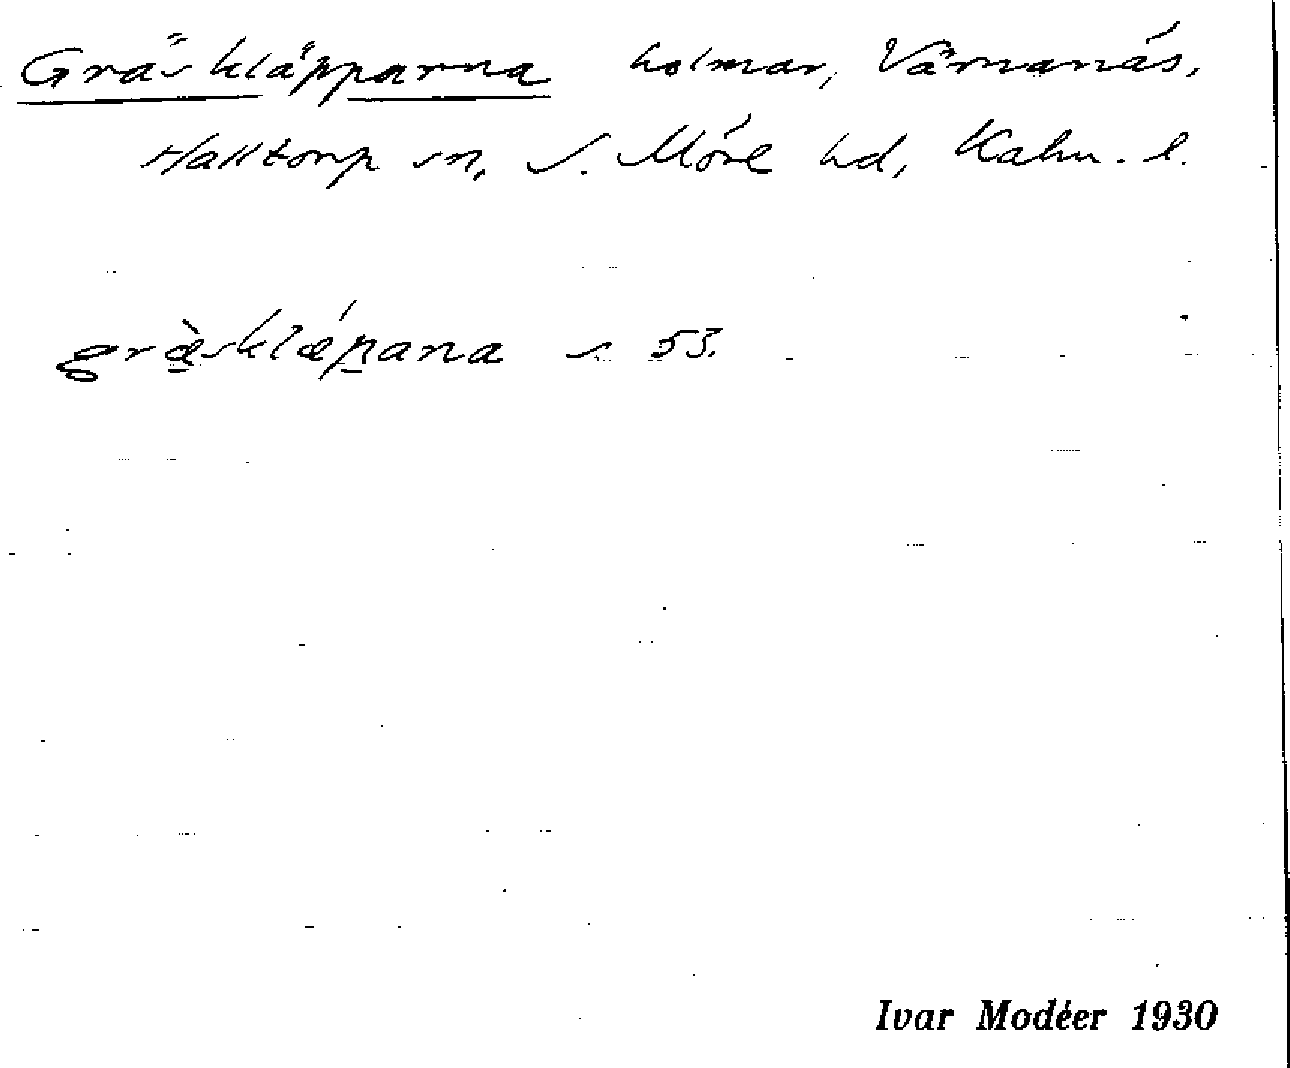 Gräskläpparna holmar, Värnanäs,
Halltorp sn, S. Möre hd, Kalm. l.
græ̀sklǽpana s 53.
Ivar Modéer 1930